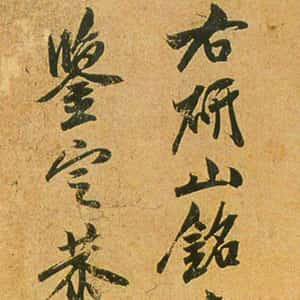 右研山銘
鑒定恭